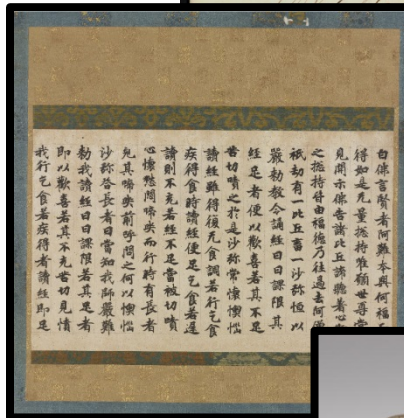 白佛言賢者阿難本與何福
得如是无量揔持唯願世尊當
見開示佛告諸比丘諦聽著心
之揔持皆由福德乃往過去阿僧
祇劫有一比丘畜一沙弥恒以
嚴勑教令誦經日日課限其
經足者便以歡喜若其不足
苦切嘖之於是沙弥常懷懊惱
讀經雖得復无食調若行乞食
疾得食時讀經便足乞食若遲
讀則不充若經不足當被切嘖
心懷愁悶啼哭而行時有長者
見其啼哭前呼問之何以懊惱
沙弥答長者曰當知我師嚴難
勑我讀經日日課限若其足者
即以歡喜若其不充苦切見嘖
我行乞食若疾得者讀經即足